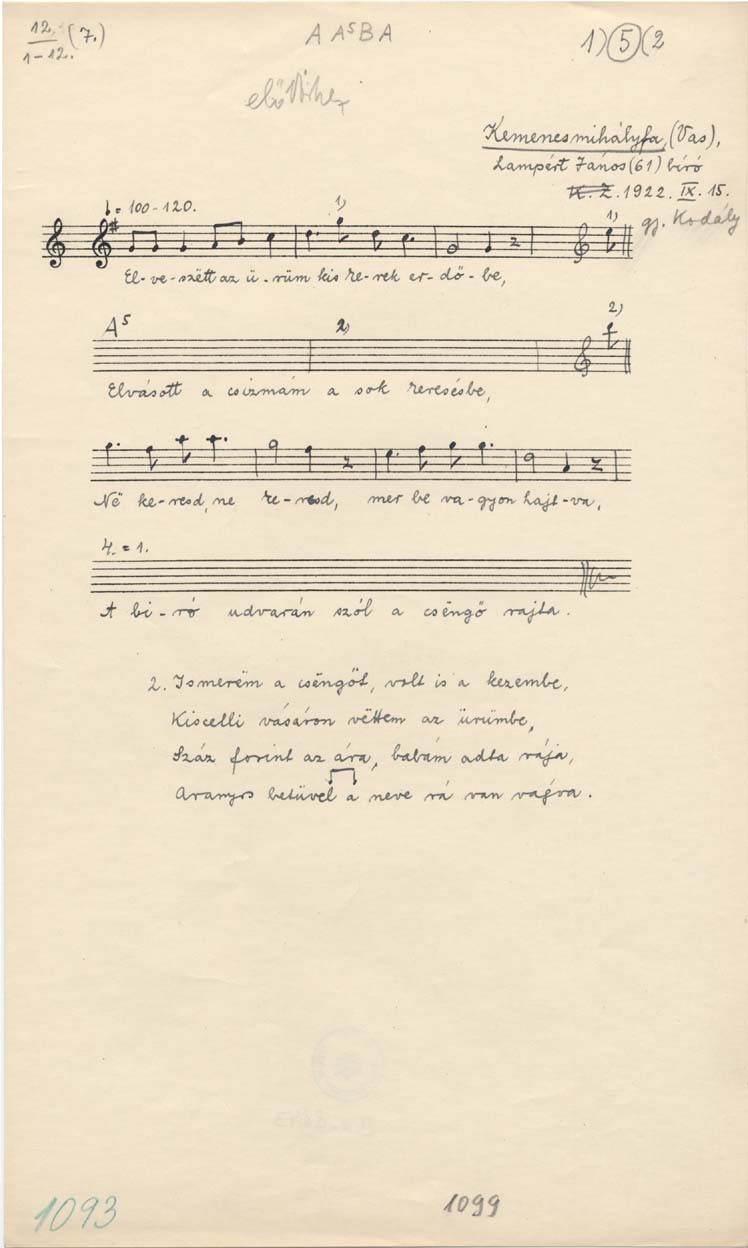 12. (7.)
1-12.
A A⁵ B A
1) 5 (2
Kemenesmihályfa, (Vas),
Lampért János (61) bíró
K. Z. 1922. IX. 15.
gj. Kodály
= 100-120.
1)
1)
El-ve-szëtt az ü-rüm kis ke-rek er-dő-be,
A⁵
2)
2)
Elvásott a csizmám a sok keresésbe,
Në ke-resd, ne ke-resd, mer be va-gyon hajt-va,
4. = 1.
A bi-ró udvarán szól a csëngő rajta.
2. Ismerëm a csëngőt, volt is a kezembe,
Kiscelli vásáron vëttem az ürümbe,
Száz forint az ára, babám adta rája,
Aranyos betüvel a neve rá van vágva.
1093
1099